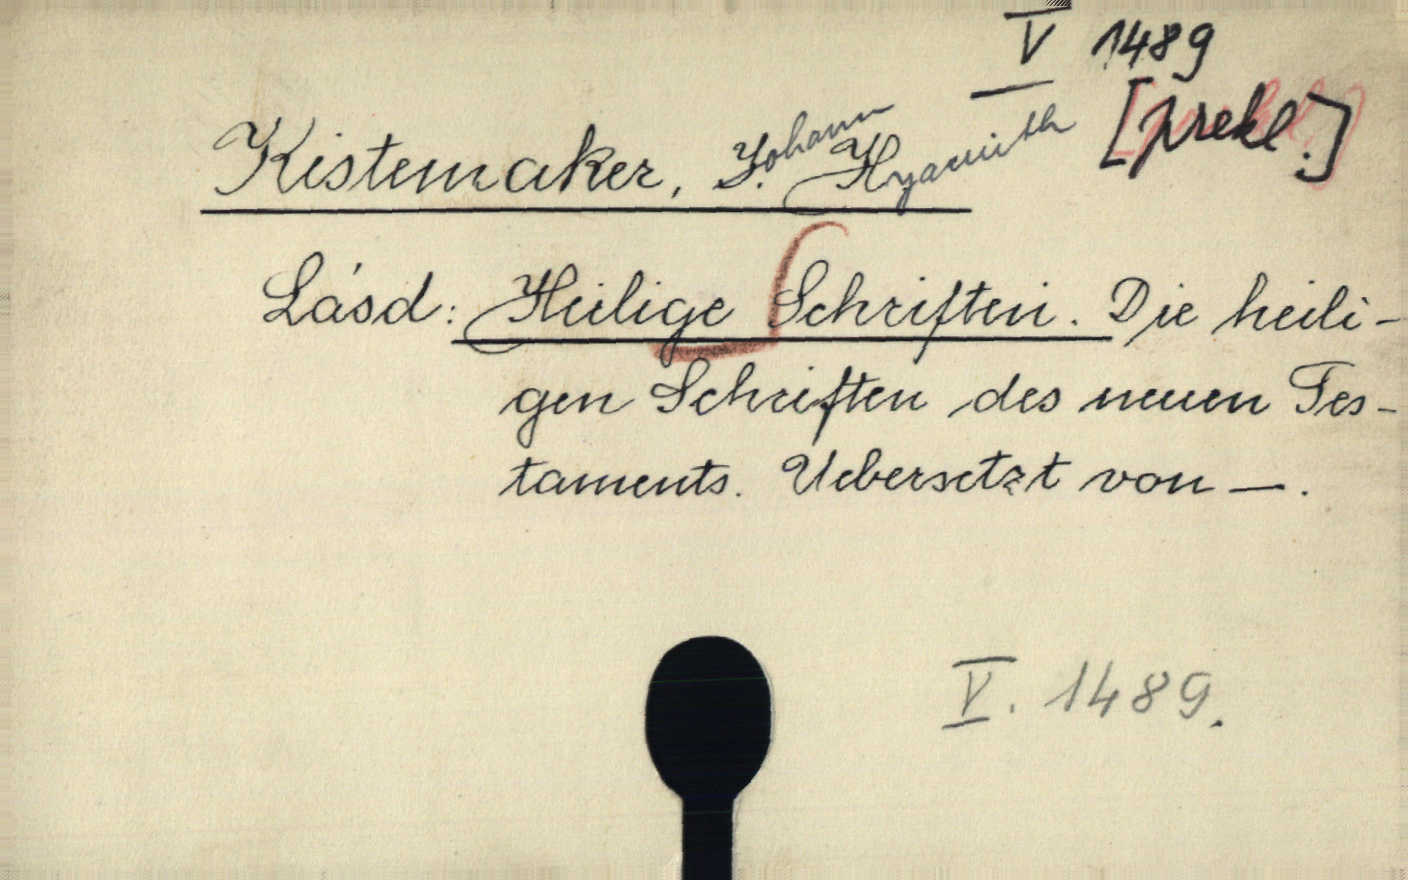 V 1489
Kistemaker, Johann Hyacinth [prekl.]
Lásd: Heilige Schriften. Die heili-
gen Schriften des neuen Tes-
taments. Uebersetzt von —.
V. 1489.